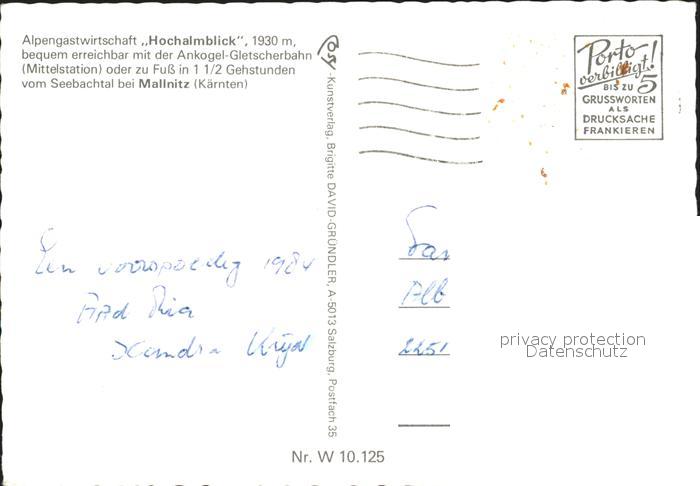 Alpengastwirtschaft „Hochalmblick", 1930 m,
bequem erreichbar mit der Ankogel-Gletscherbahn
(Mittelstation) oder zu Fuß in 1 1/2 Gehstunden
vom Seebachtal bei Mallnitz (Kärnten)
Cosy-Kunstverlag, Brigitte DAVID-GRÜNDLER, A-5013 Salzburg, Postfach 35
Porto
verbilligt!
BIS ZU 5
GRUSSWORTEN
ALS
DRUCKSACHE
FRANKIEREN
Een voorspoedig 1984
Aad Ria
Fam
Alb
2251
privacy protection
Datenschutz
Nr. W 10.125